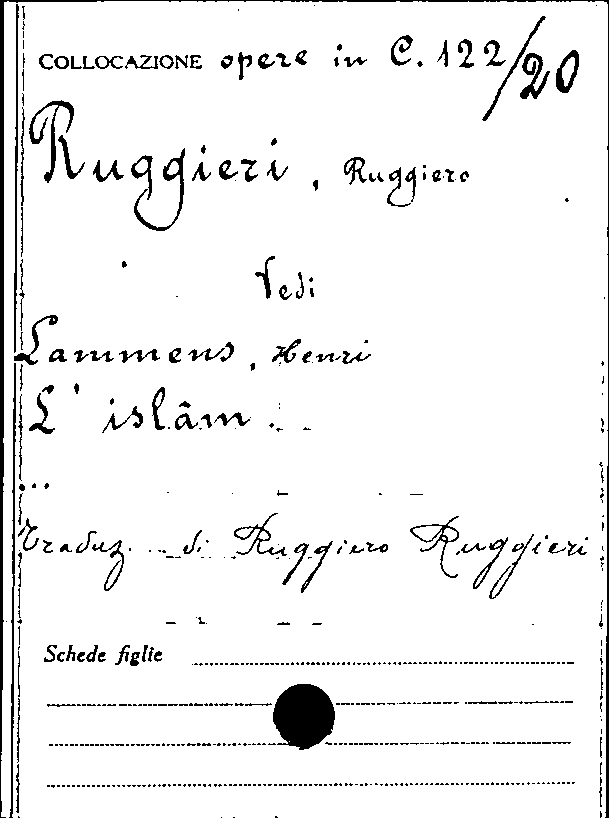 COLLOCAZIONE opere in C. 122/20
Ruggieri, Ruggiero
Vedi
Lammens, Henri
L'islâm.
...
Traduz. ... di Ruggiero Ruggieri
Schede figlie